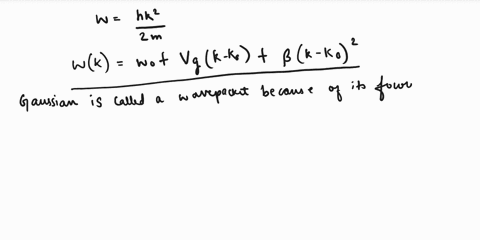 w = hk² / 2m
w(k) = w₀ + Vg(k-k₀) + β(k-k₀)²
Gaussian is called a wavepacket because of its four